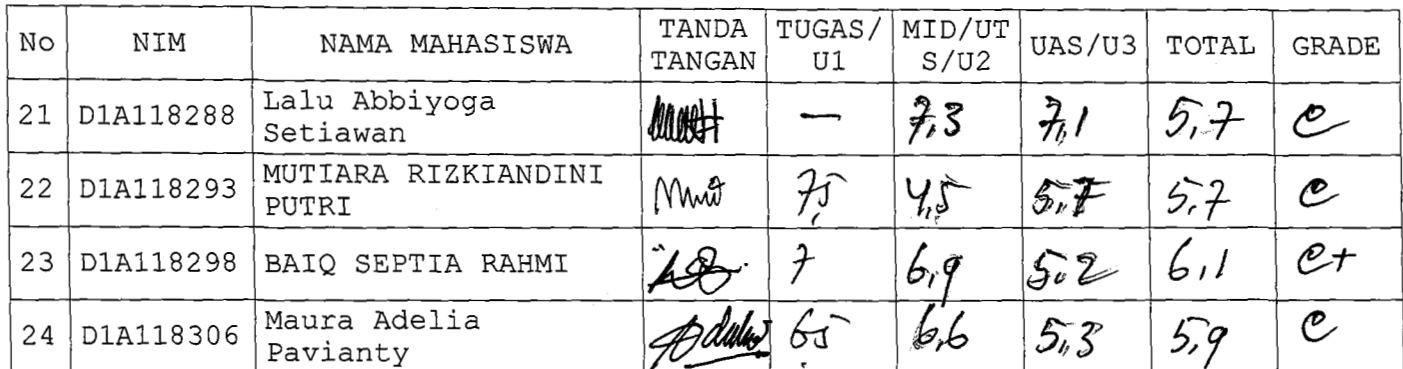 No NIM NAMA MAHASISWA TANDA TANGAN TUGAS/U1 MID/UTS/U2 UAS/U3 TOTAL GRADE
21 D1A118288 Lalu Abbiyoga Setiawan — 7,3 7,1 5,7 C
22 D1A118293 MUTIARA RIZKIANDINI PUTRI 7,5 4,5 5,7 5,7 C
23 D1A118298 BAIQ SEPTIA RAHMI 7 6,9 5,2 6,1 C+
24 D1A118306 Maura Adelia Pavianty 6,5 6,6 5,3 5,9 C